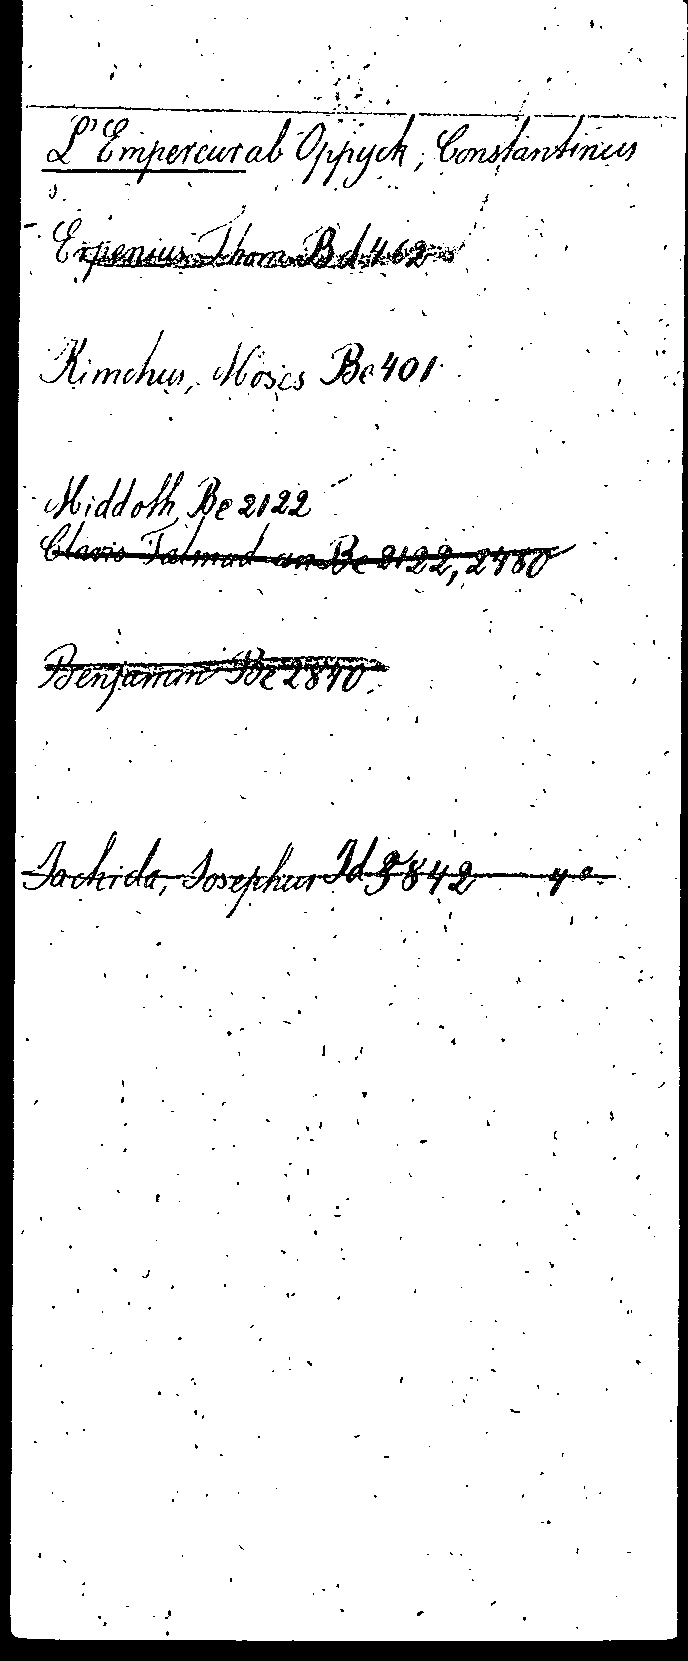 L'Empereur ab Oppyck, Constantinus
s.
Erpenius Thom Bd 462
Kimchus, Moses Be 401
Middoth Be 2122
Clavis Talmud an Be 2122, 2480
Benjamin Be 2840
Jachida, Josephur Id 8842 4°.